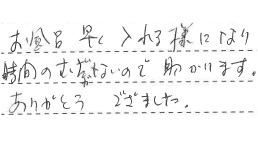 お風呂早く入れる様になり
時間のむだがないので助かります。
ありがとうございました。